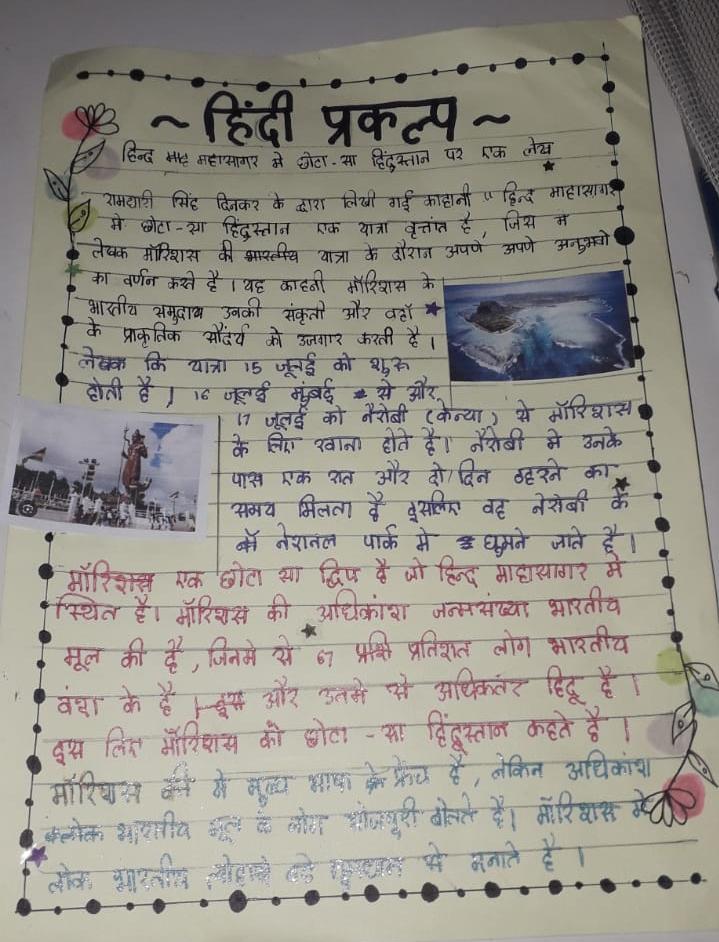 ~ हिंदी प्रकल्प ~
हिन्द माह महासागर मे छोटा - सा हिंदुस्तान पर एक लेख
रामधारी सिंह दिनकर के द्वारा लिखी गई काहानी " हिन्द माहासागर
मे छोटा - सा हिंदुस्तान एक यात्रा वृत्तांत है , जिस मे
लेखक मॉरिशस की भारतीय यात्रा के दौरान अपणे अपणे अनुभवो
का वर्णन करते है । यह काहनी मॉरिशस के
भारतीय समुदाय उनकी संकृती और वहाँ
के प्राकृतिक सौंदर्य को उजगार करती है ।
लेखक कि यात्रा 15 जूलई को शुरू
होती है । 16 जूलई मुंबई से और
17 जूलई को नैरोबी ( केन्या ) से मॉरिशस
के लिए रवाना होते है । नैरोबी मे उनके
पास एक रात और दो दिन ठहरने का
समय मिलता है इसलिए वह नेरोबी के
नॅ नेशनल पार्क मे घुमने जाते है ।
मॉरिशस एक छोटा सा द्विप है जो हिन्द माहासागर मे
स्थित है । मॉरिशस की अधिकांश जनसंख्या भारतीय
मूल की है , जिनमे से 67 प्रति प्रतिशत लोग भारतीय
वंश के है । इस और उनमे से अधिकतर हिंदू है ।
इस लिए मॉरिशस को छोटा - सा हिंदुस्तान कहते है ।
मॉरिशस मे मुख्य भाषा फ्रेंच है , लेकिन अधिकांश
भारतीय मूल के लोग भोजपूरी बोलते है । मॉरिशस मे
लोक भारतीय से मनाते है ।